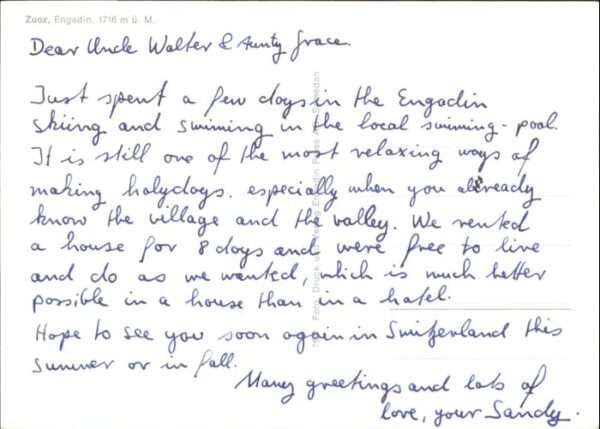 Zuoz, Engadin, 1716 m ü. M.
Dear Uncle Walter & Aunty Grace.
Just spent a few days in the Engadin
skiing and swiming in the local swiming-pool.
It is still one of the most relaxing ways of
making holydays. especially when you already
know the village and the valley. We rented
a house for 8 days and were free to live
and do as we wanted, which is much better
possible in a house than in a hotel.
Hope to see you soon again in Switzerland this
summer or in fall.
Many greetings and lots of
love, your Sandy.
Foto, Druck Verlag Engadin Press Samedan